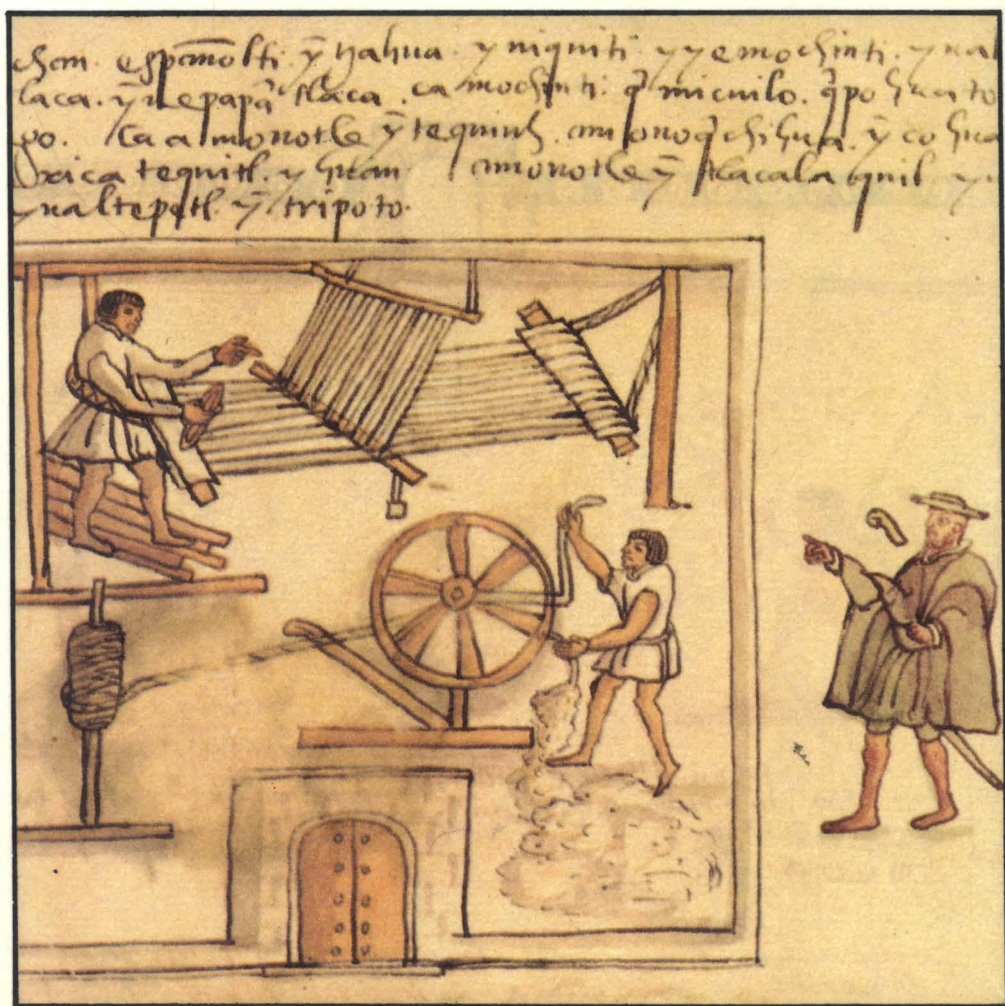 chan. españolti. ȳ nahua. yniquiti. yyemochinti. yna
laca. ȳnepapā tlaca. ca mochinti. q̄ micuilo. q̄pohua to
go. Ca amonotle ȳ tequiuh. amonoq̄chihua. ȳ cohua
tequitl. yhuan. amonotle ȳ tlacalaquil y
ynaltepetl. ȳ tripoto.